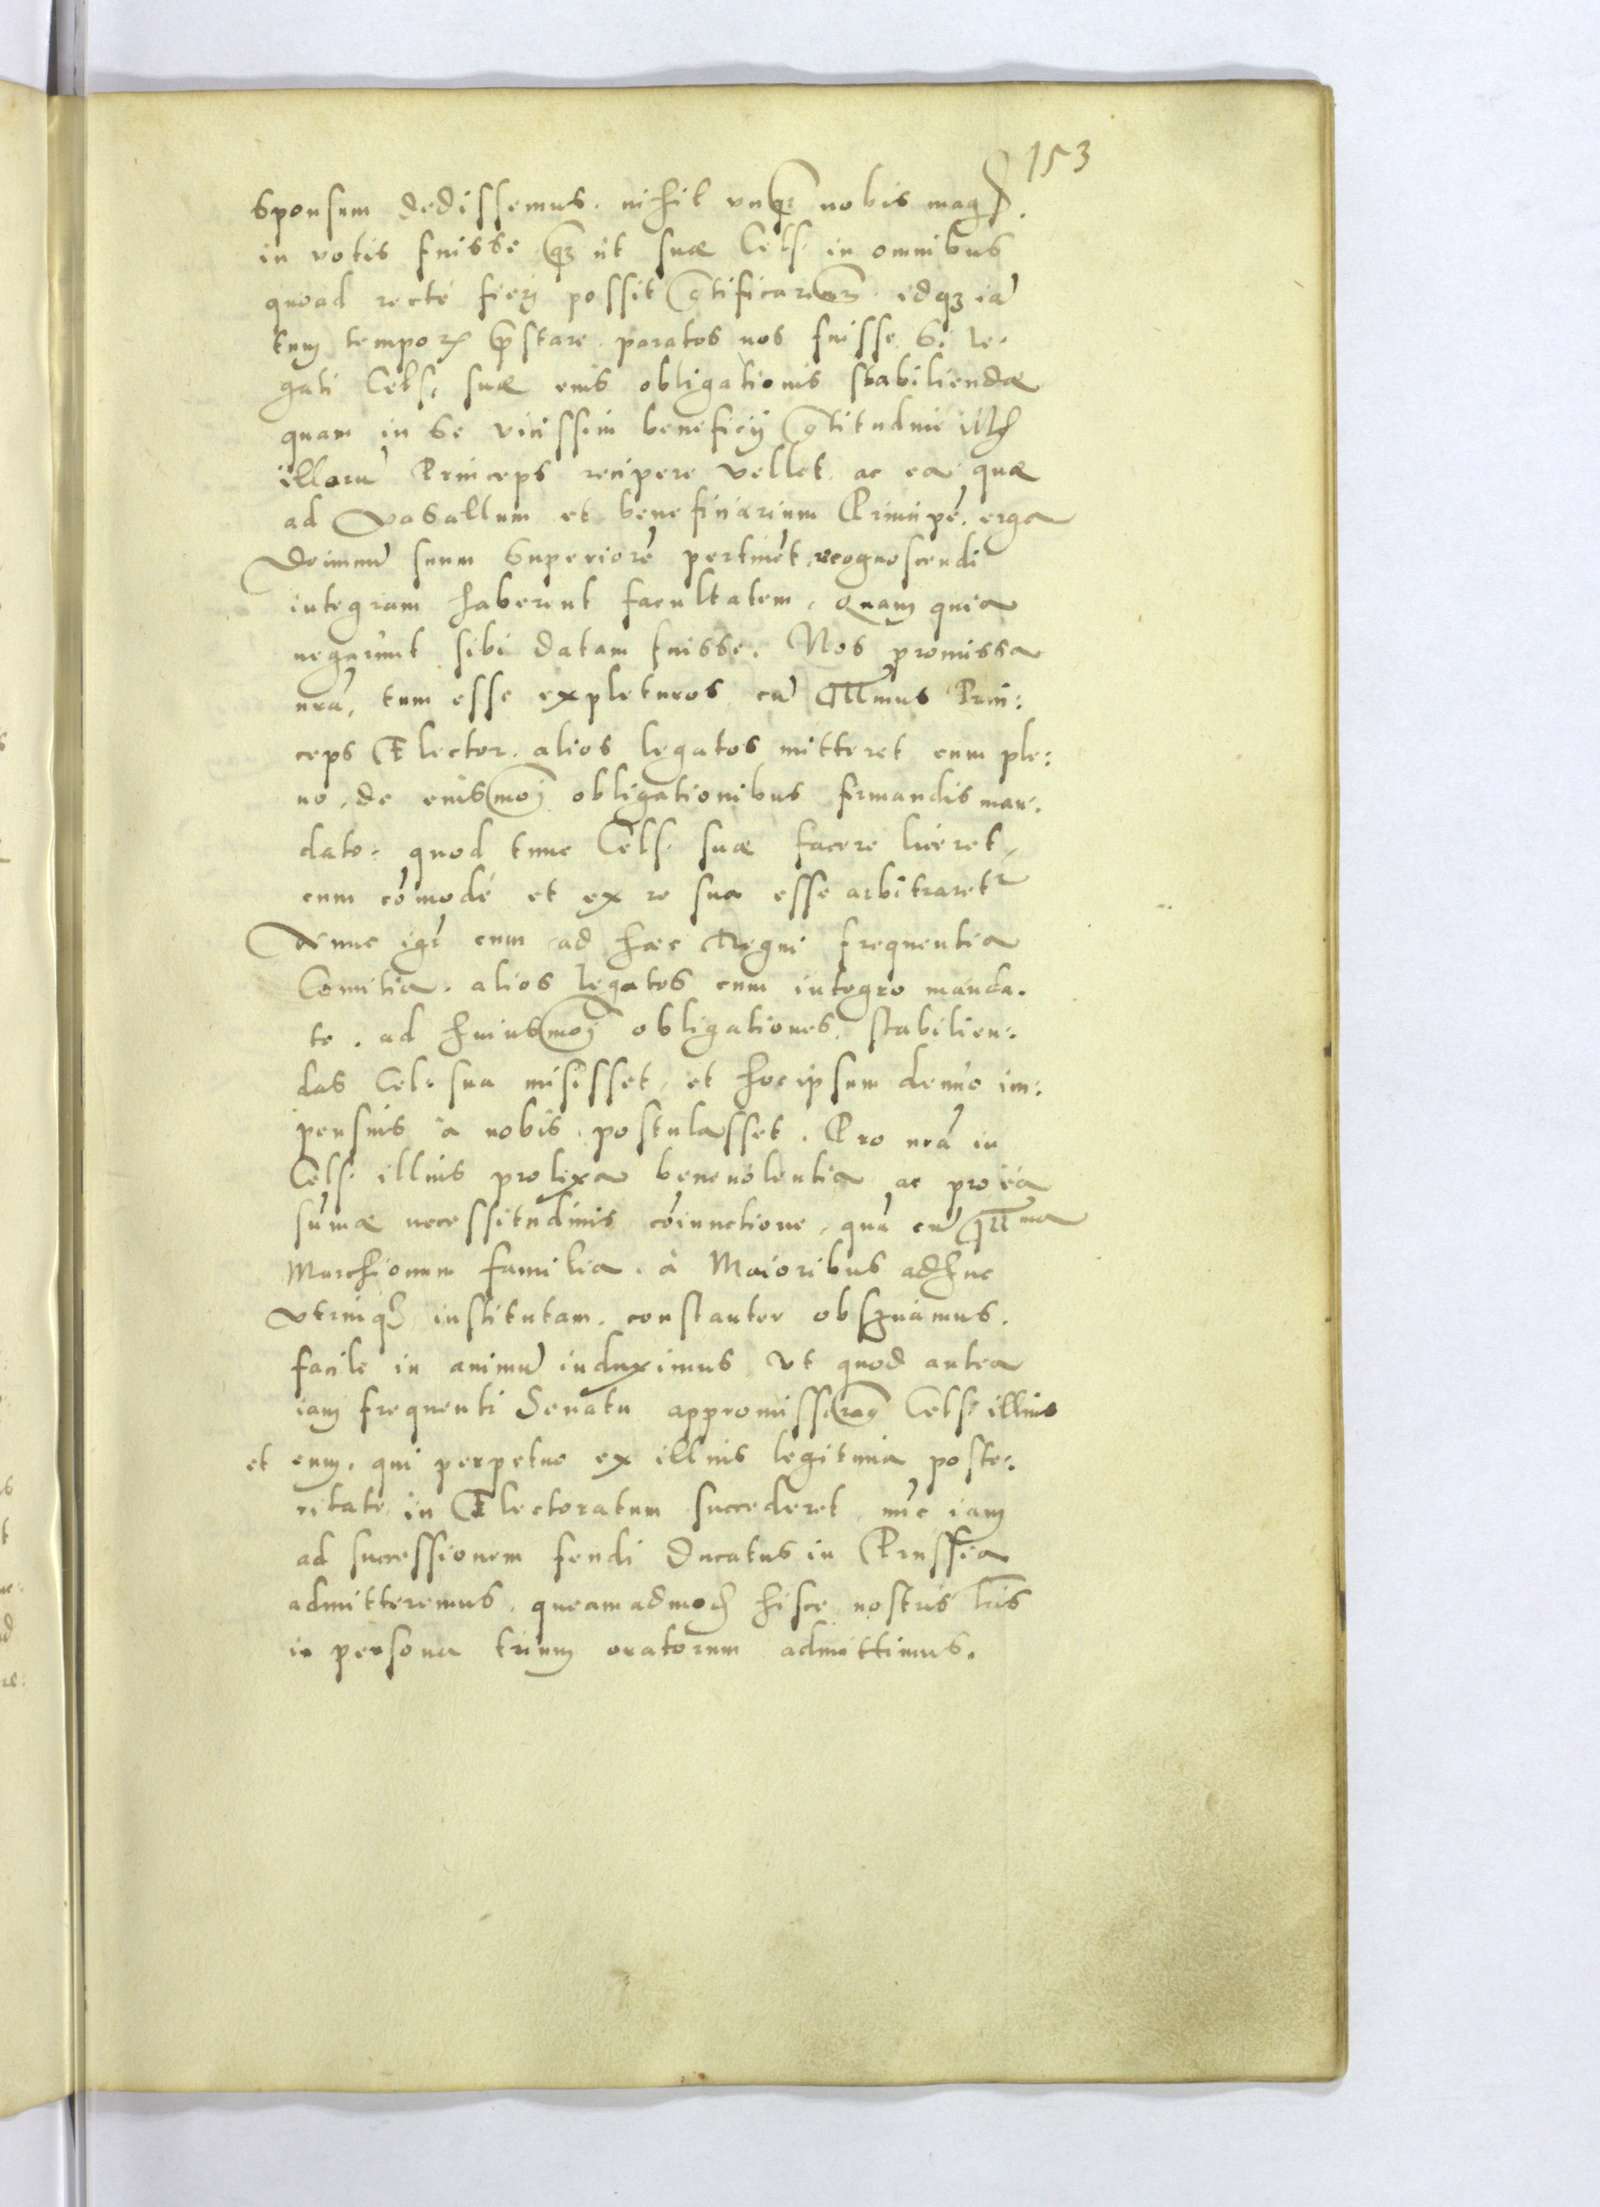 153
sponsum dedissemus. nihil vnq̃ nobis mag̃.
in votis fuisse q̃ ut suæ Cels. in omnibus
quoad recté fierj possit g̃tificaremur. idqz iã
tum tempor̃ p̃stare paratos nos fuisse. si le-
gati Cels. suæ eius obligationis stabiliendæ
quam in se vicissim beneficij g̃titudine
illorũ Princeps recipere vellet. ac ea quæ
ad Vasallum et beneficiarium Principẽ. erga
Dominũ suum superiorẽ pertinẽt recognoscendi
integram haberent facultatem. Quam quia
negarunt sibi datam fuisse. Nos promissa
nr̃a, tum esse expleturos cũ Illmus Prin:
ceps Elector. alios legatos mitteret cum ple:
no. de eiusmoj obligationibus firmandis man:
dato. quod tunc Cels. suæ facere liceret,
cum cõmodé et ex re sua esse arbitraretr
Nunc igr̃ cum ad hæc Regni frequentia
Comitia. alios legatos cum integro manda.
to. ad huiusmoj obligationes. stabilien:
das Cel. sua misisset, et hoc ipsum denuo im:
pensius à nobis. postulasset. Pro nr̃a in
Cels. illius prolixa beneuolentia ac pro ea
sũmæ necessitudinis cõiunctione, quã cũ Illma
Marchionum familia. à Maioribus adhuc
vtrinq̃ institutam. constanter obseruamus.
facile in animũ induximus vt quod antea
iam frequenti Senatu appromisseram Cels. illius
et eum. qui perpetuo ex illius legitima poste:
ritate in Electoratum succederet nũc iam
ad successionem feudi Ducatus in Prussia
admitteremus. queamadmod̃ hisce nostris lr̃is
in persona trium oratorum admittimus.